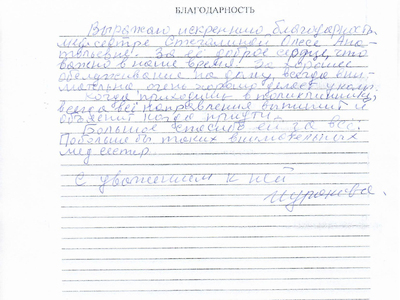 БЛАГОДАРНОСТЬ
Выражаю искреннюю благодарность
медсестре Олесе Ана-
тольевне. За её доброе сердце, что
важно в наше время. За хорошее
обслуживание на дому, всегда вни-
мательна, очень хорошо делает уколы.
Когда приходишь в поликлинику,
всегда все направления выпишит и
объяснит когда придти.
Большое спасибо ей за всё.
Побольше бы таких внимательных
мед сестер.
С уважением к ней